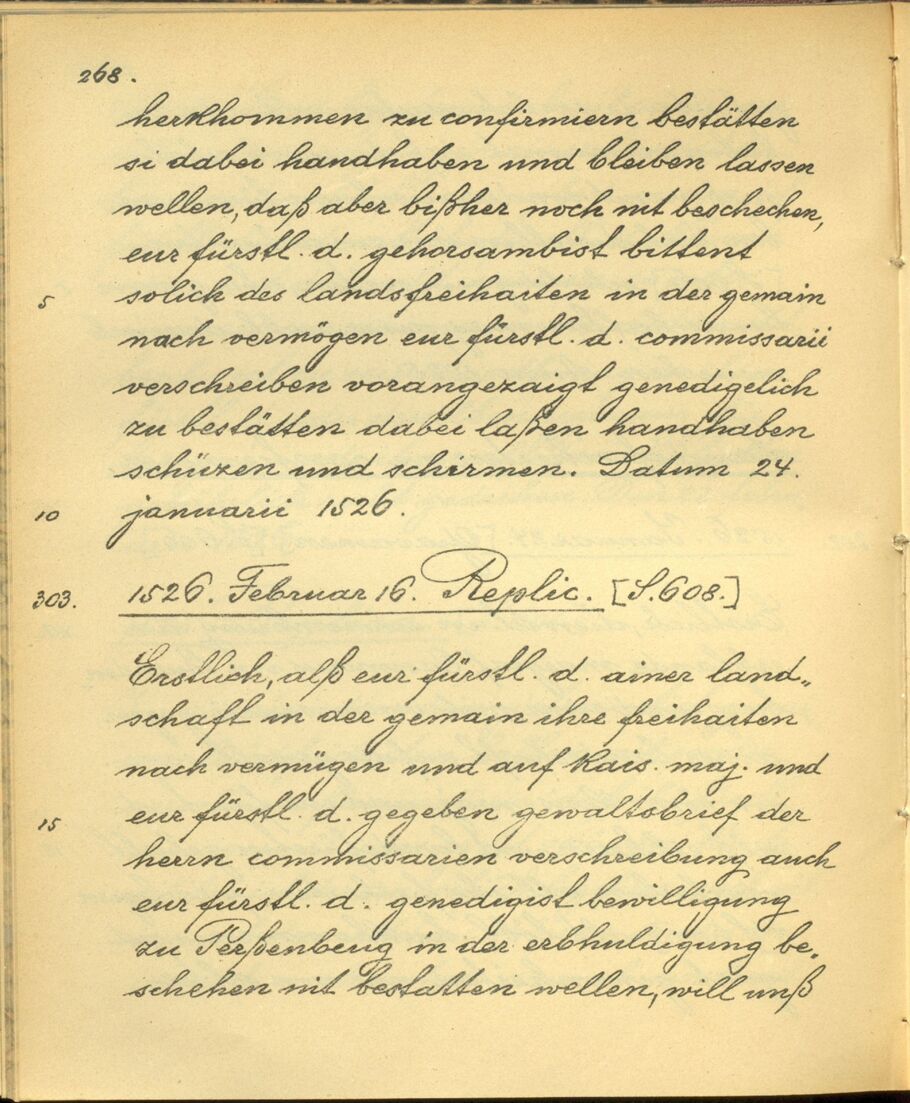 268.
herkhommen zu confirmiern bestätten
si dabei handhaben und bleiben lassen
wellen, daß aber bißher noch nit beschechen,
eur fürstl. d. gehorsambist bittent
5 solich des landsfreihaiten in der gemain
nach vermögen eur fürstl. d. commissarii
verschreiben vorangezaigt genedigelich
zu bestätten dabei laßen handhaben
schüzen und schirmen. Datum 24.
10 januarii 1526.
303. 1526. Februar 16. Replic. [S. 608.]
Erstlich, alß eur fürstl. d. ainer land„
schaft in der gemain ihre freihaiten
nach vermügen und auf kais. maj. und
15 eur fürstl. d. gegeben gewaltsbrief der
herrn commissarien verschreibung auch
eur fürstl. d. genedigist bewilligung
zu Perßenbeug in der erbhuldigung be„
schehen nit bestatten wellen, will unß